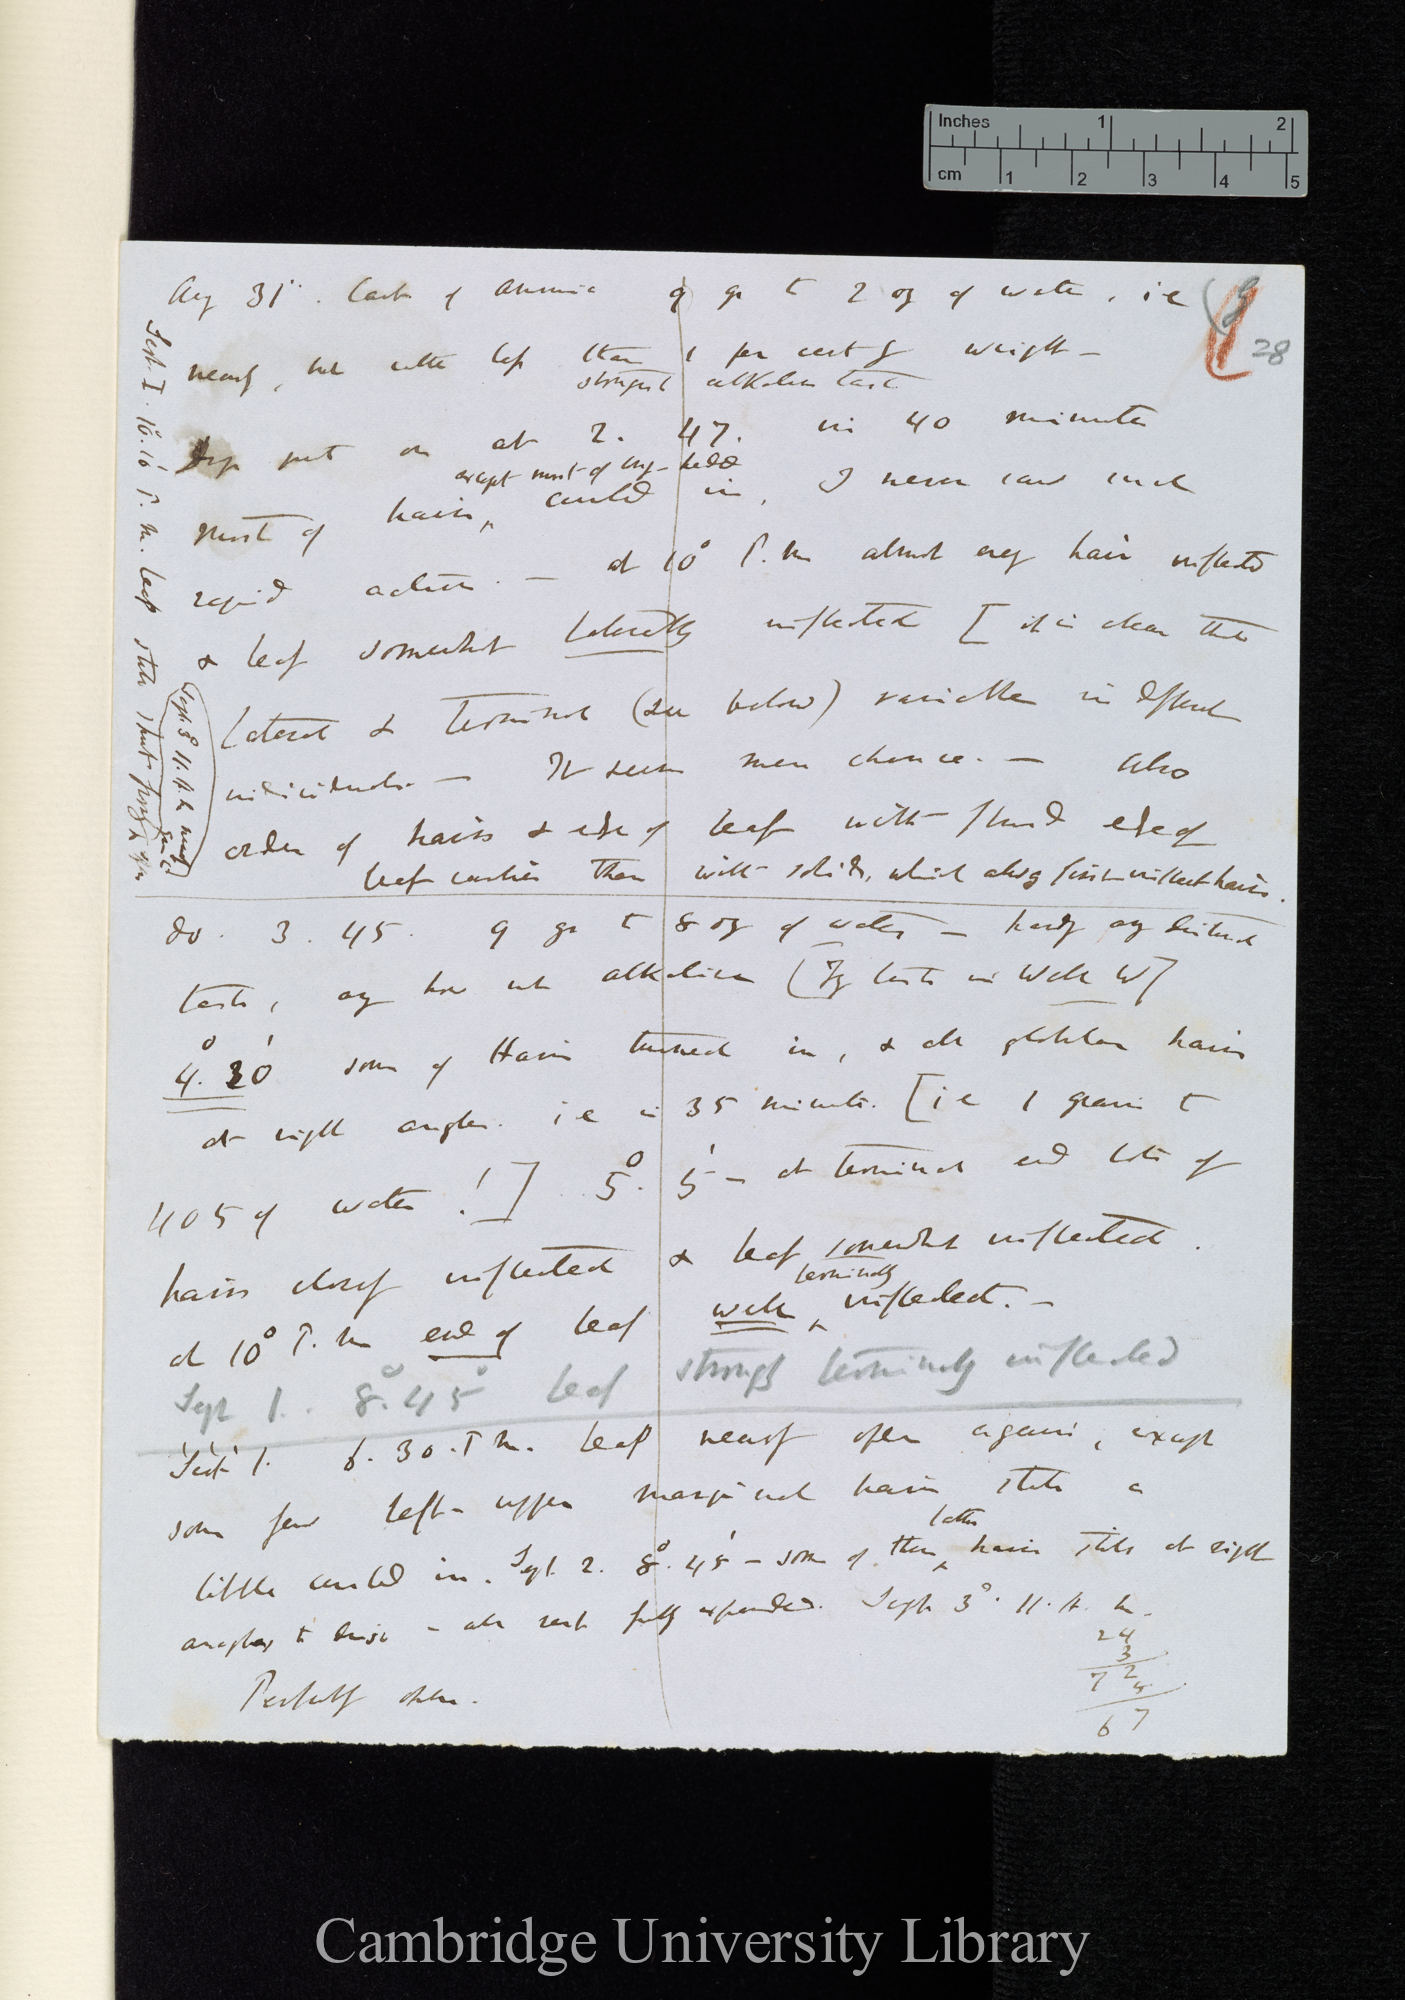 Inches 1 2
cm 1 2 3 4 5
Aug 31st. Carb of Ammonia 9 gr to 2 oz of water, i.e (9
28
nearly, but rather less than 1 per cent of weight —
strongest alkaline taste
Drop put on at 2. 47. in 40 minutes
except most of long-headed
most of hairs ^ curled in, I never saw such
rapid action. — at 10° P.m almost every hair inflected
& leaf somewhat Laterally inflected [ it is clear that
Lateral & Terminal (see below) variable in different
individuals. — It seems mere chance. — also
order of hairs & edge of leaf with fluid edge of
leaf earlier than with solids, which always first inflect hairs.
Sept. I. 10.15 P. m. leaf still shut
Sept 3° 11. A. m
do. 3. 45. 9 gr to 8 oz of water — hardly any distinct
taste, any how not alkaline ( Try taste in Well W]
4.° 20' some of Hairs turned in, & all glandular hairs
at right angles. i e in 35 minutes. [i e 1 grain to
405 of water ! ] 5°. 5' — at terminal end lots of
hairs closely inflected & leaf somewhat inflected.
terminally
at 10° P. m end of leaf well ^ inflected. —
Sept 1. 8°. 45' leaf strongly terminally inflected
Sept 1. 6. 30. P m. leaf nearly open again, except
some few left-upper marginal hairs still a
latter
little curled in. Sept 2. 8°. 45' — some of these ^ hairs still at right
angles to disc — all rest fully expanded. Sept 3°. 11. A. m.
Perfectly open.
24
3
72
4
67
Cambridge University Library